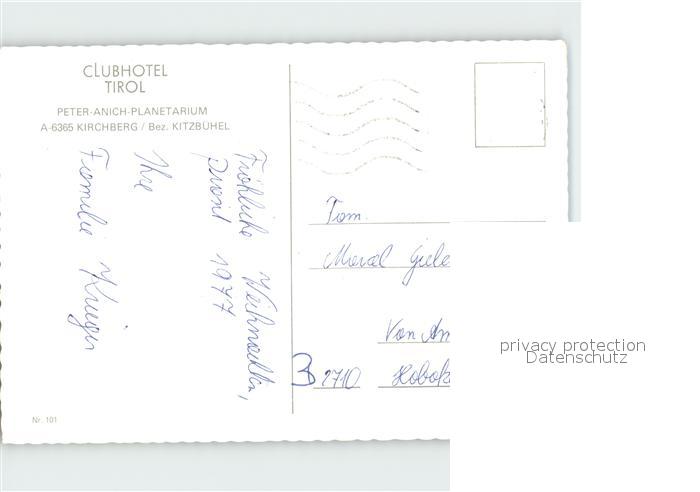 CLUBHOTEL
TIROL
PETER-ANICH-PLANETARIUM
A-6365 KIRCHBERG / Bez. KITZBÜHEL
Fröhliche Weihnachten,
Prosit 1977
Ihre
Familie Krieger
Nr. 101
Fam.
Marcel Giele
Von Am
B 2710 Hobok
privacy protection
Datenschutz